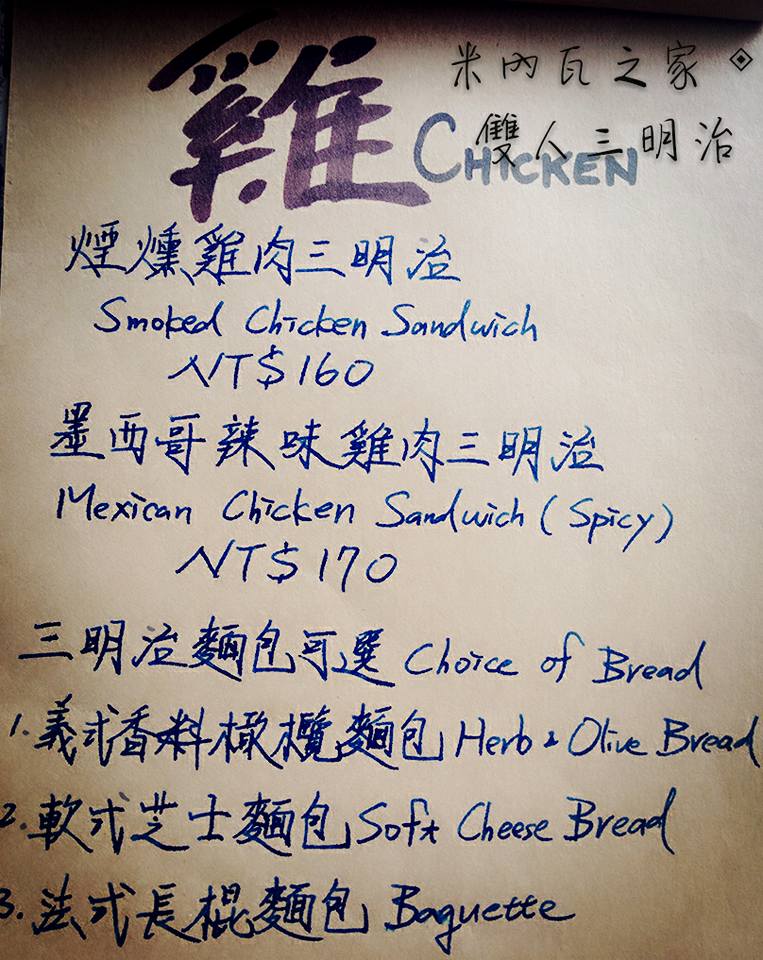 雞
米內瓦之家
CHICKEN
雙人三明治
煙燻雞肉三明治
Smoked Chicken Sandwich
NT$160
墨西哥辣味雞肉三明治
Mexican Chicken Sandwich (Spicy)
NT$170
三明治麵包可選 Choice of Bread
1. 義式香料橄欖麵包 Herb & Olive Bread
2. 軟式芝士麵包 Soft Cheese Bread
3. 法式長棍麵包 Baguette